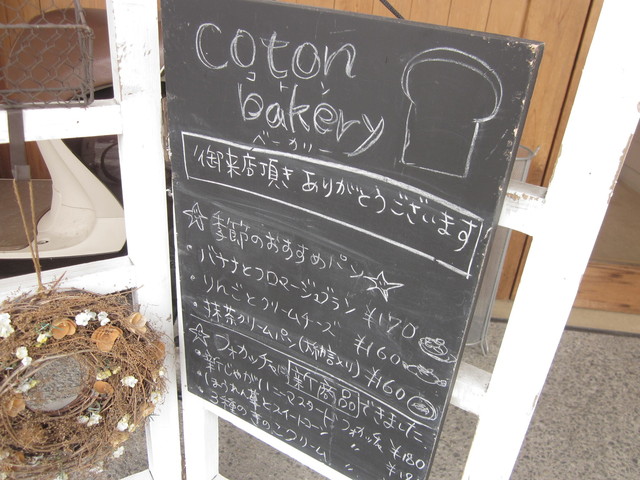 coton
コトン
bakery
ベーカリー
御来店頂きありがとうございます
☆季節のおすすめパン☆
・バナナとフロマージュブラン ¥170
・りんごとクリームチーズ ¥160
・抹茶クリームパン(大納言入り) ¥160
☆フォカッチャに新商品できました
・新じゃがいもとマスタードフォカッチャ ¥180
・ほうれん草とスイートコーン 〃
・3種のきのこクリーム 〃